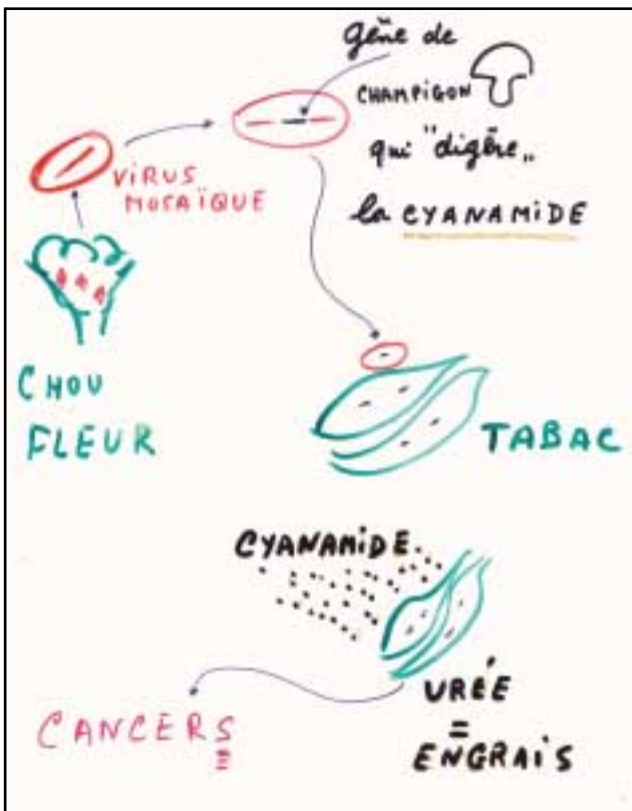 gêne de
CHAMPIGON
qui "digère"
la CYANAMIDE
VIRUS
MOSAÏQUE
CHOU
FLEUR
TABAC
CYANAMIDE
URÉE
=
ENGRAIS
CANCERS